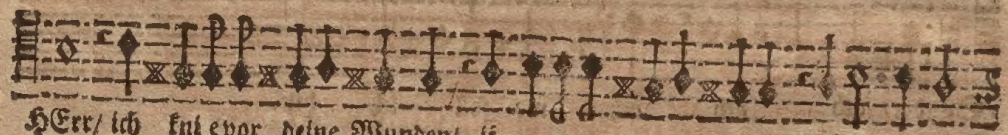 HErr/ ich kni e vor deine Wunden/